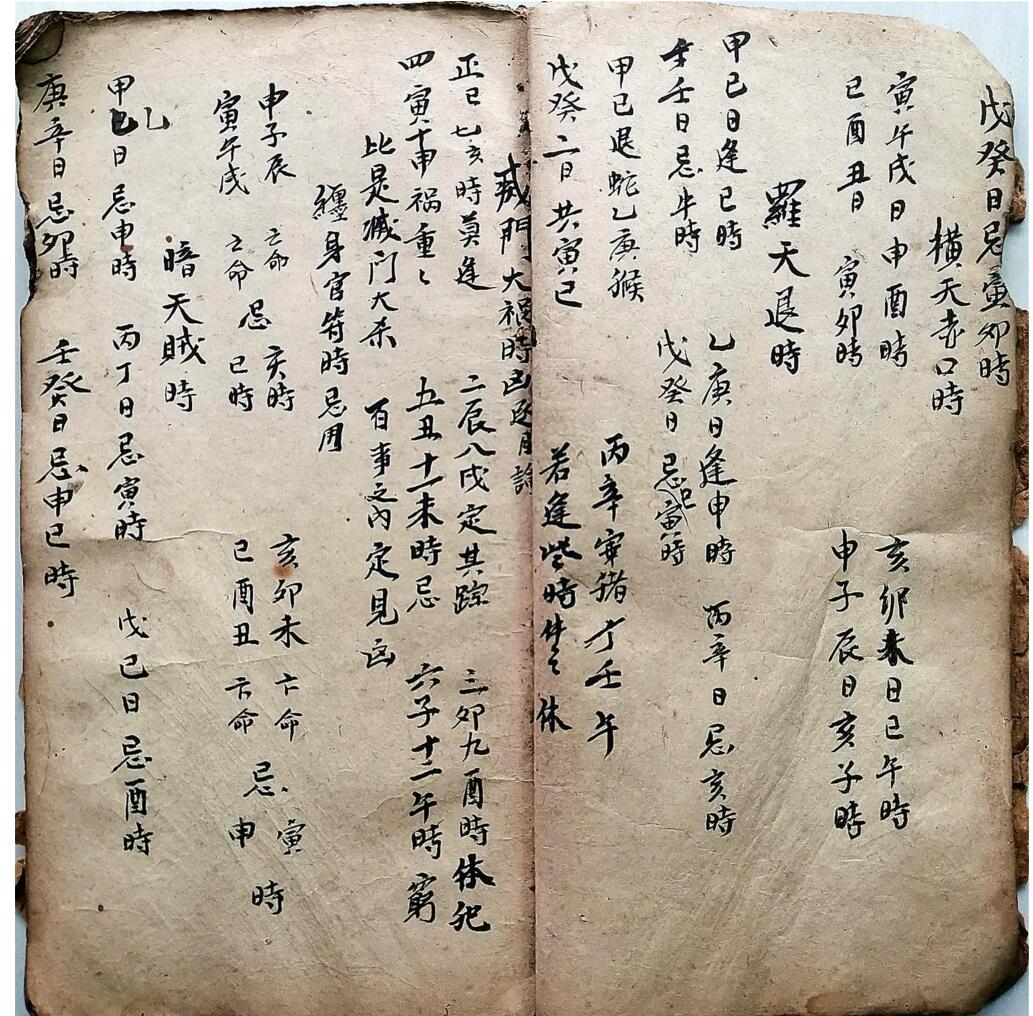 戊癸日忌寅卯時
橫天赤口時
寅午戌日申酉時 亥卯未日巳午時
巳酉丑日 寅卯時 申子辰日亥子時
羅天退時
甲己日逢巳時 乙庚日逢申時 丙辛日忌亥時
壬日忌午時 戊癸日忌寅時
甲己退蛇乙庚猴 丙辛寅猪丁壬午
戊癸二日共寅巳 若逢些時休〻休
滅門大禍時凶逐月論
正巳七亥時莫逢 二辰八戌定其踪 三卯九酉時休犯
四寅十申祸重〻 五丑十一未時忌 六子十二午時窮
比是滅门大杀 百事之內定見凶
纏身官符時忌用
申子辰 亡命 忌 亥時 亥卯未 亡命 忌 寅
寅午戌 亡命 巳時 巳酉丑 亡命 申 時
暗天賊時
甲乙日忌申時 丙丁日忌寅時 戊己日忌酉時
庚辛日忌卯時 壬癸日忌申巳時